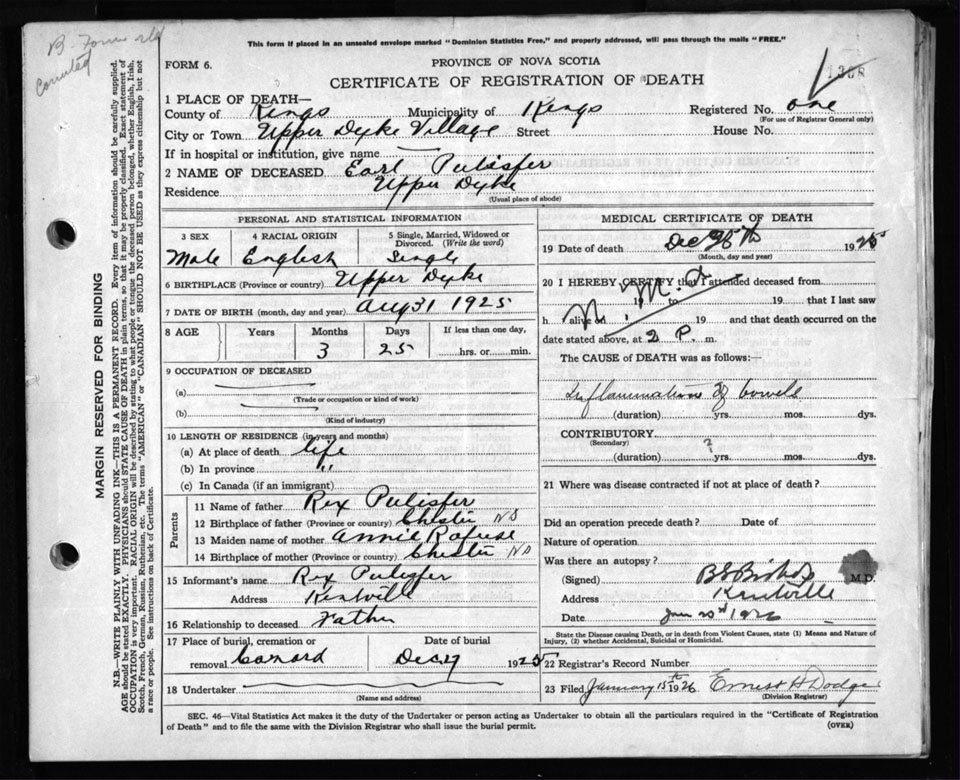 B. Form
This form if placed in an unsealed envelope marked "Dominion Statistics Free," and properly addressed, will pass through the mails "FREE."
FORM 6.
PROVINCE OF NOVA SCOTIA
CERTIFICATE OF REGISTRATION OF DEATH
1 PLACE OF DEATH—
County of Kings Municipality of Kings Registered No. one
(For use of Registrar General only)
City or Town Upper Dyke Village Street House No.
If in hospital or institution, give name —
2 NAME OF DECEASED Earl Pulisfer
Residence Upper Dyke
(Usual place of abode)
PERSONAL AND STATISTICAL INFORMATION
3 SEX 4 RACIAL ORIGIN 5 Single, Married, Widowed or Divorced. (Write the word)
Male English Single
6 BIRTHPLACE (Province or country) Upper Dyke
7 DATE OF BIRTH (month, day and year) Aug 31 1925
8 AGE Years Months Days If less than one day,
3 25 hrs. or min.
9 OCCUPATION OF DECEASED
(a)
(Trade or occupation or kind of work)
(b)
(Kind of industry)
10 LENGTH OF RESIDENCE (in years and months)
(a) At place of death life
(b) In province "
(c) In Canada (if an immigrant)
Parents
11 Name of father Rex Pulisfer
12 Birthplace of father (Province or country) Chester NS
13 Maiden name of mother Annie Rafuse
14 Birthplace of mother (Province or country) Chester NS
15 Informant's name Rex Pulisfer
Address Kentville
16 Relationship to deceased Father
17 Place of burial, cremation or removal Canard Date of burial Dec 27 1925
18 Undertaker
(Name and address)
MEDICAL CERTIFICATE OF DEATH
19 Date of death Dec 25th 1925
(Month, day and year)
20 I HEREBY CERTIFY that I attended deceased from
19 to 19 that I last saw
h alive on 19 and that death occurred on
date stated above, at 2 P. m.
The CAUSE of DEATH was as follows:—
Inflammation of bowels
(duration) yrs. mos. dys.
CONTRIBUTORY
(Secondary)
(duration) ? yrs. mos. dys.
21 Where was disease contracted if not at place of death?
Did an operation precede death? Date of
Nature of operation
Was there an autopsy?
(Signed) M.D.
Address Kentville
Date 1926
State the Disease causing Death, or in death from Violent Causes, state (1) Means and Nature of
Injury, (2) whether Accidental, Suicidal or Homicidal.
22 Registrar's Record Number
23 Filed January 15th 1926 Ernest H Dodge
(Division Registrar)
SEC. 46—Vital Statistics Act makes it the duty of the Undertaker or person acting as Undertaker to obtain all the particulars required in the "Certificate of Registration
of Death" and to file the same with the Division Registrar who shall issue the burial permit. (OVER)
MARGIN RESERVED FOR BINDING
N.B.—WRITE PLAINLY WITH UNFADING INK—THIS IS A PERMANENT RECORD. Every item of information should be carefully supplied.
AGE should be stated EXACTLY. PHYSICIANS should STATE CAUSE OF DEATH in plain terms, so that it may be properly classified. Exact statement of
OCCUPATION is very important. RACIAL ORIGIN will be described by stating to what people or tongue the deceased person belonged, whether English, Irish,
Scotch, French, German, Russian, Ruthenian, etc. The terms "AMERICAN" or "CANADIAN" SHOULD NOT BE USED as they express citizenship but not
a race or people. See instructions on back of Certificate.